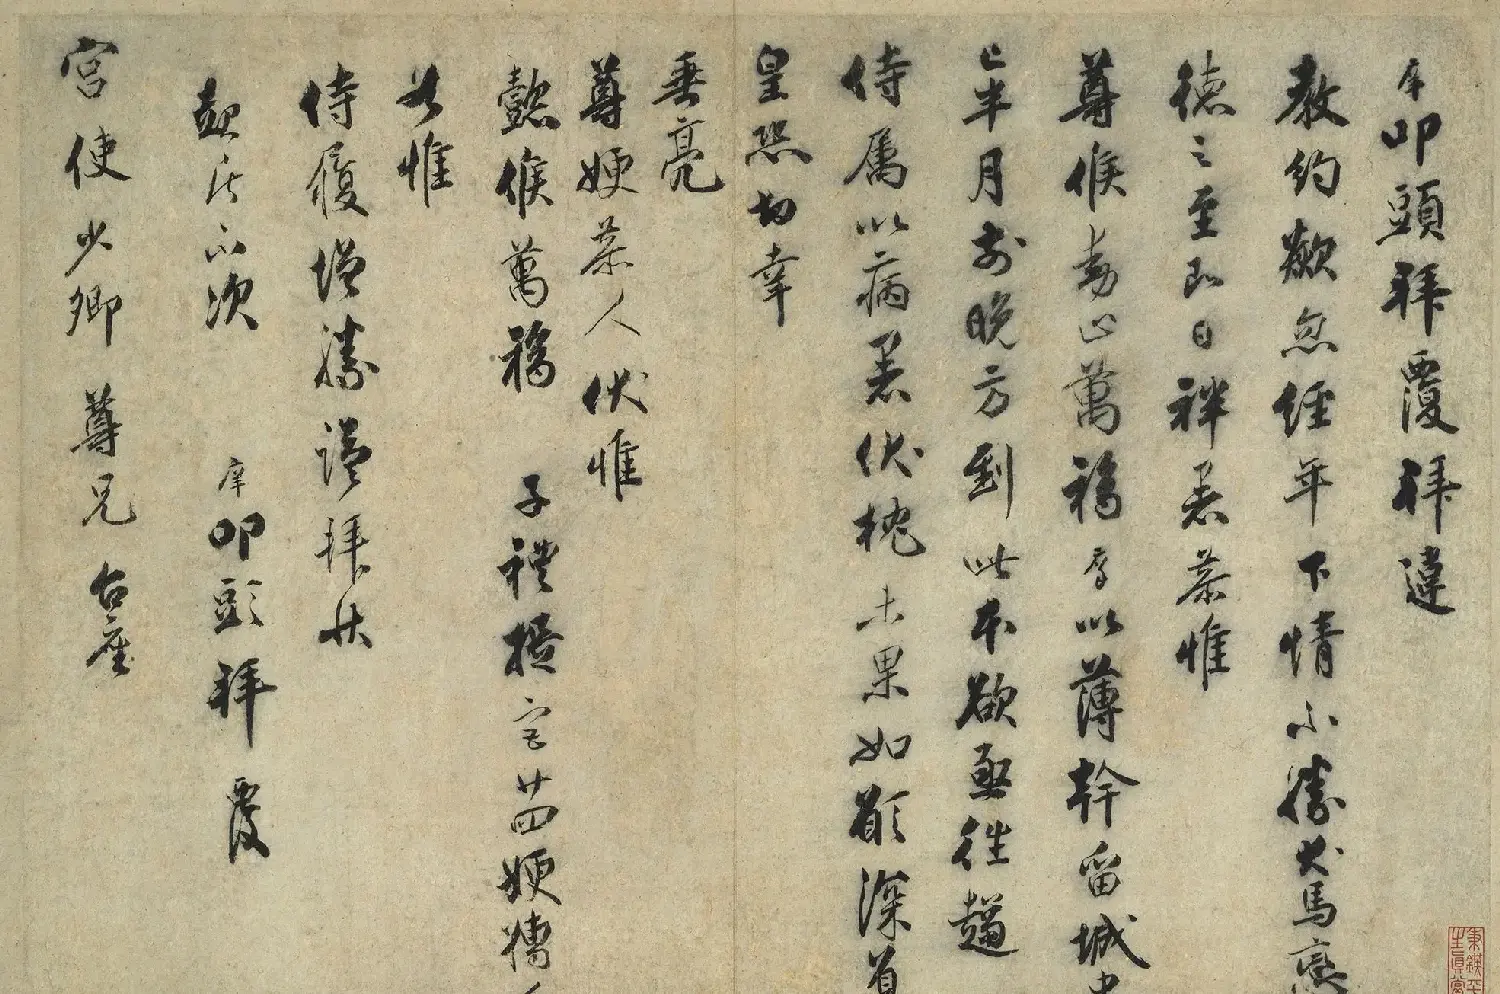 庠叩頭拜覆拜違
教約歘忽經年下情不勝犬馬戀
德之至即日祥暑恭惟
尊候動止萬福庠以薄幹留城中
已半月前晚方到此本欲亟往趨
侍屬以病暑伏枕未果如願深負
皇恐切幸
垂亮
尊嫂恭人伏惟
懿候萬福 子禮提宮廿四嫂孺人
各惟
侍履增勝謹拜狀
起居不次 庠叩頭拜覆
宮使少卿尊兄台座